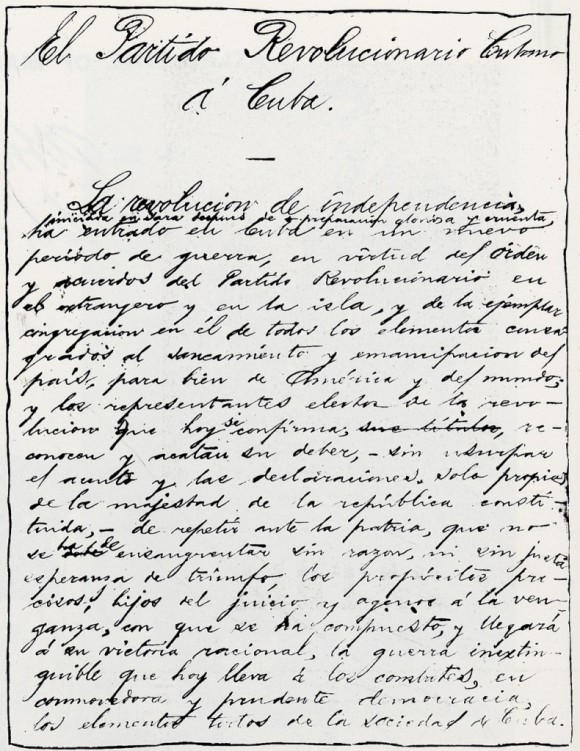 El Partido Revolucionario Cubano
á Cuba.
La revolucion de independencia,
iniciada en Yara despues de preparacion gloriosa y cruenta,
ha entrado en Cuba en un nuevo
período de guerra, en virtud del órden
y acuerdos del Partido Revolucionario en
el extrangero y en la isla, y de la ejemplar
congregacion en él de todos los elementos consa-
grados al saneamiento y emancipacion del
país, para bien de América y del mundo;
y los representantes electos de la revo-
lucion que hoy se confirma, reco-
nocen y acatan su deber, - sin usurpar
el acento y las declaraciones solo propias
de la majestad de la república consti-
tuida, - de repetir ante la patria, que no
se ha de ensangrentar sin razon, ni sin justa
esperanza de triunfo, los propósitos pre-
cisos, hijos del juicio y agenos á la ven-
ganza, con que se ha compuesto, y llegará
á su victoria racional, la guerra inextin-
guible que hoy lleva á los combates, en
conmovedora y prudente democracia,
los elementos todos de la sociedad de Cuba.